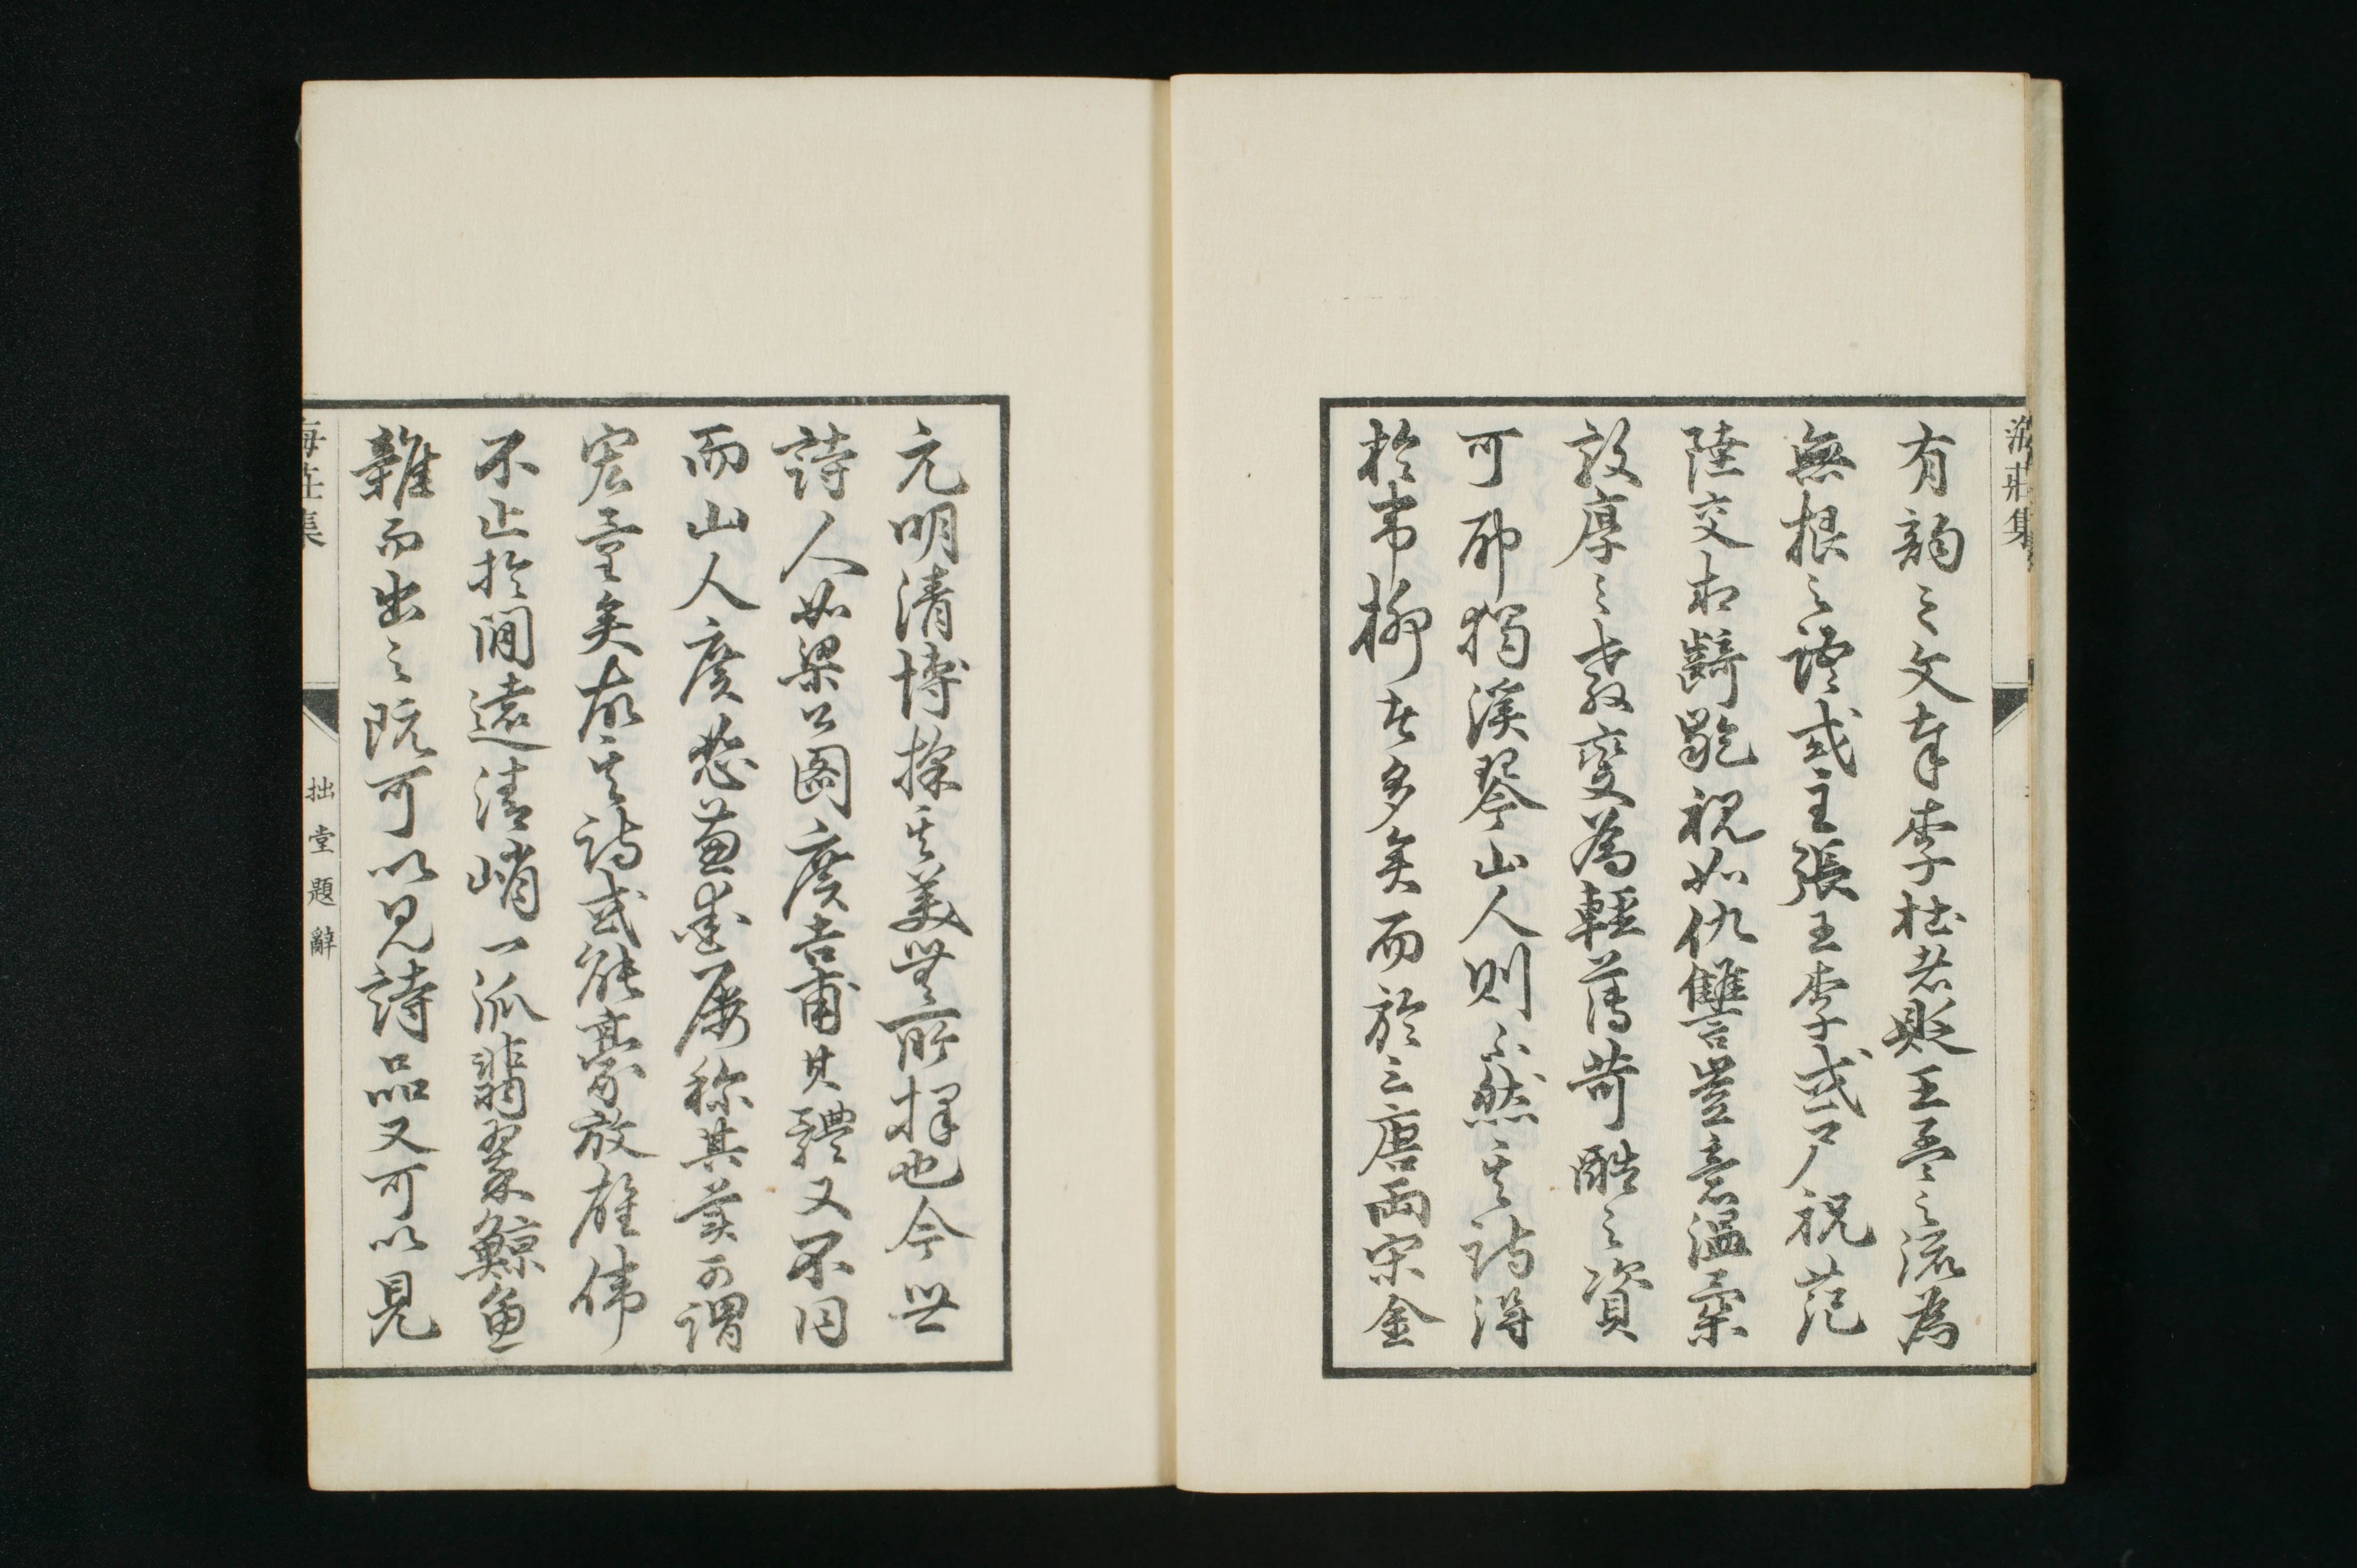 海莊集
有韵之文奉李杜者貶王孟之流為
無根之譚或主張王李或尸祝范
陸交相齮齕視如仇讐豈意溫柔
敦厚之教變為輕薄苛酷之資
可耶獨溪琴山人則不然其詩得
於韋柳者多矣而於三唐兩宋金
元明清博採其美無所擇也今世
詩人如梁公圖廣吉甫其體又不同
而山人廣
宏量矣故其詩或能豪放雄偉
不止於閒遠清峭一派翡翠鯨魚
雜而出之既可以見詩品又可以見
海莊集
拙堂題辭